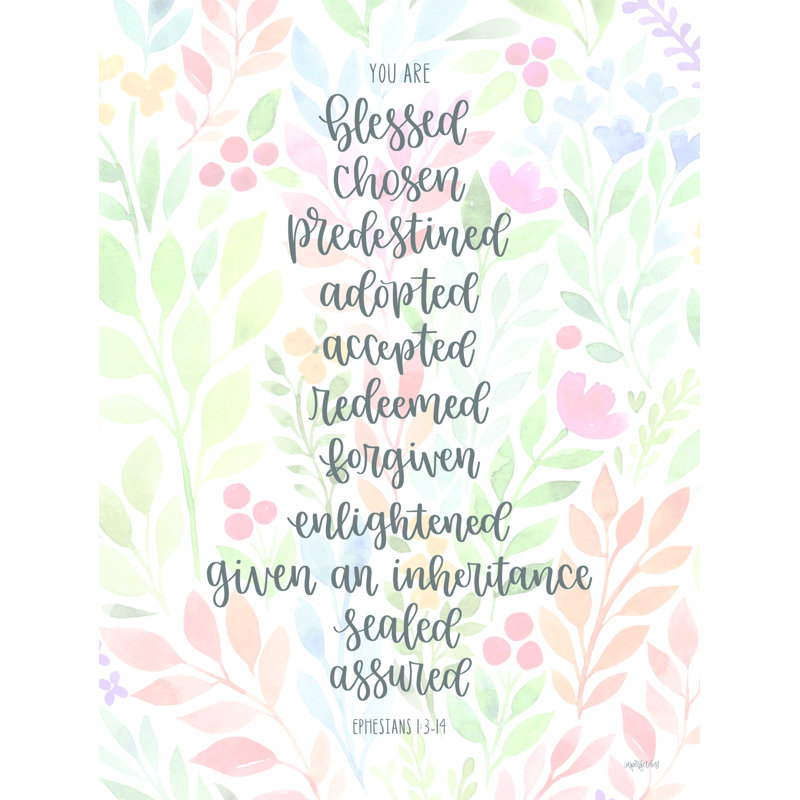 YOU ARE
blessed
chosen
predestined
adopted
accepted
redeemed
forgiven
enlightened
given an inheritance
sealed
assured
EPHESIANS 1:3-14